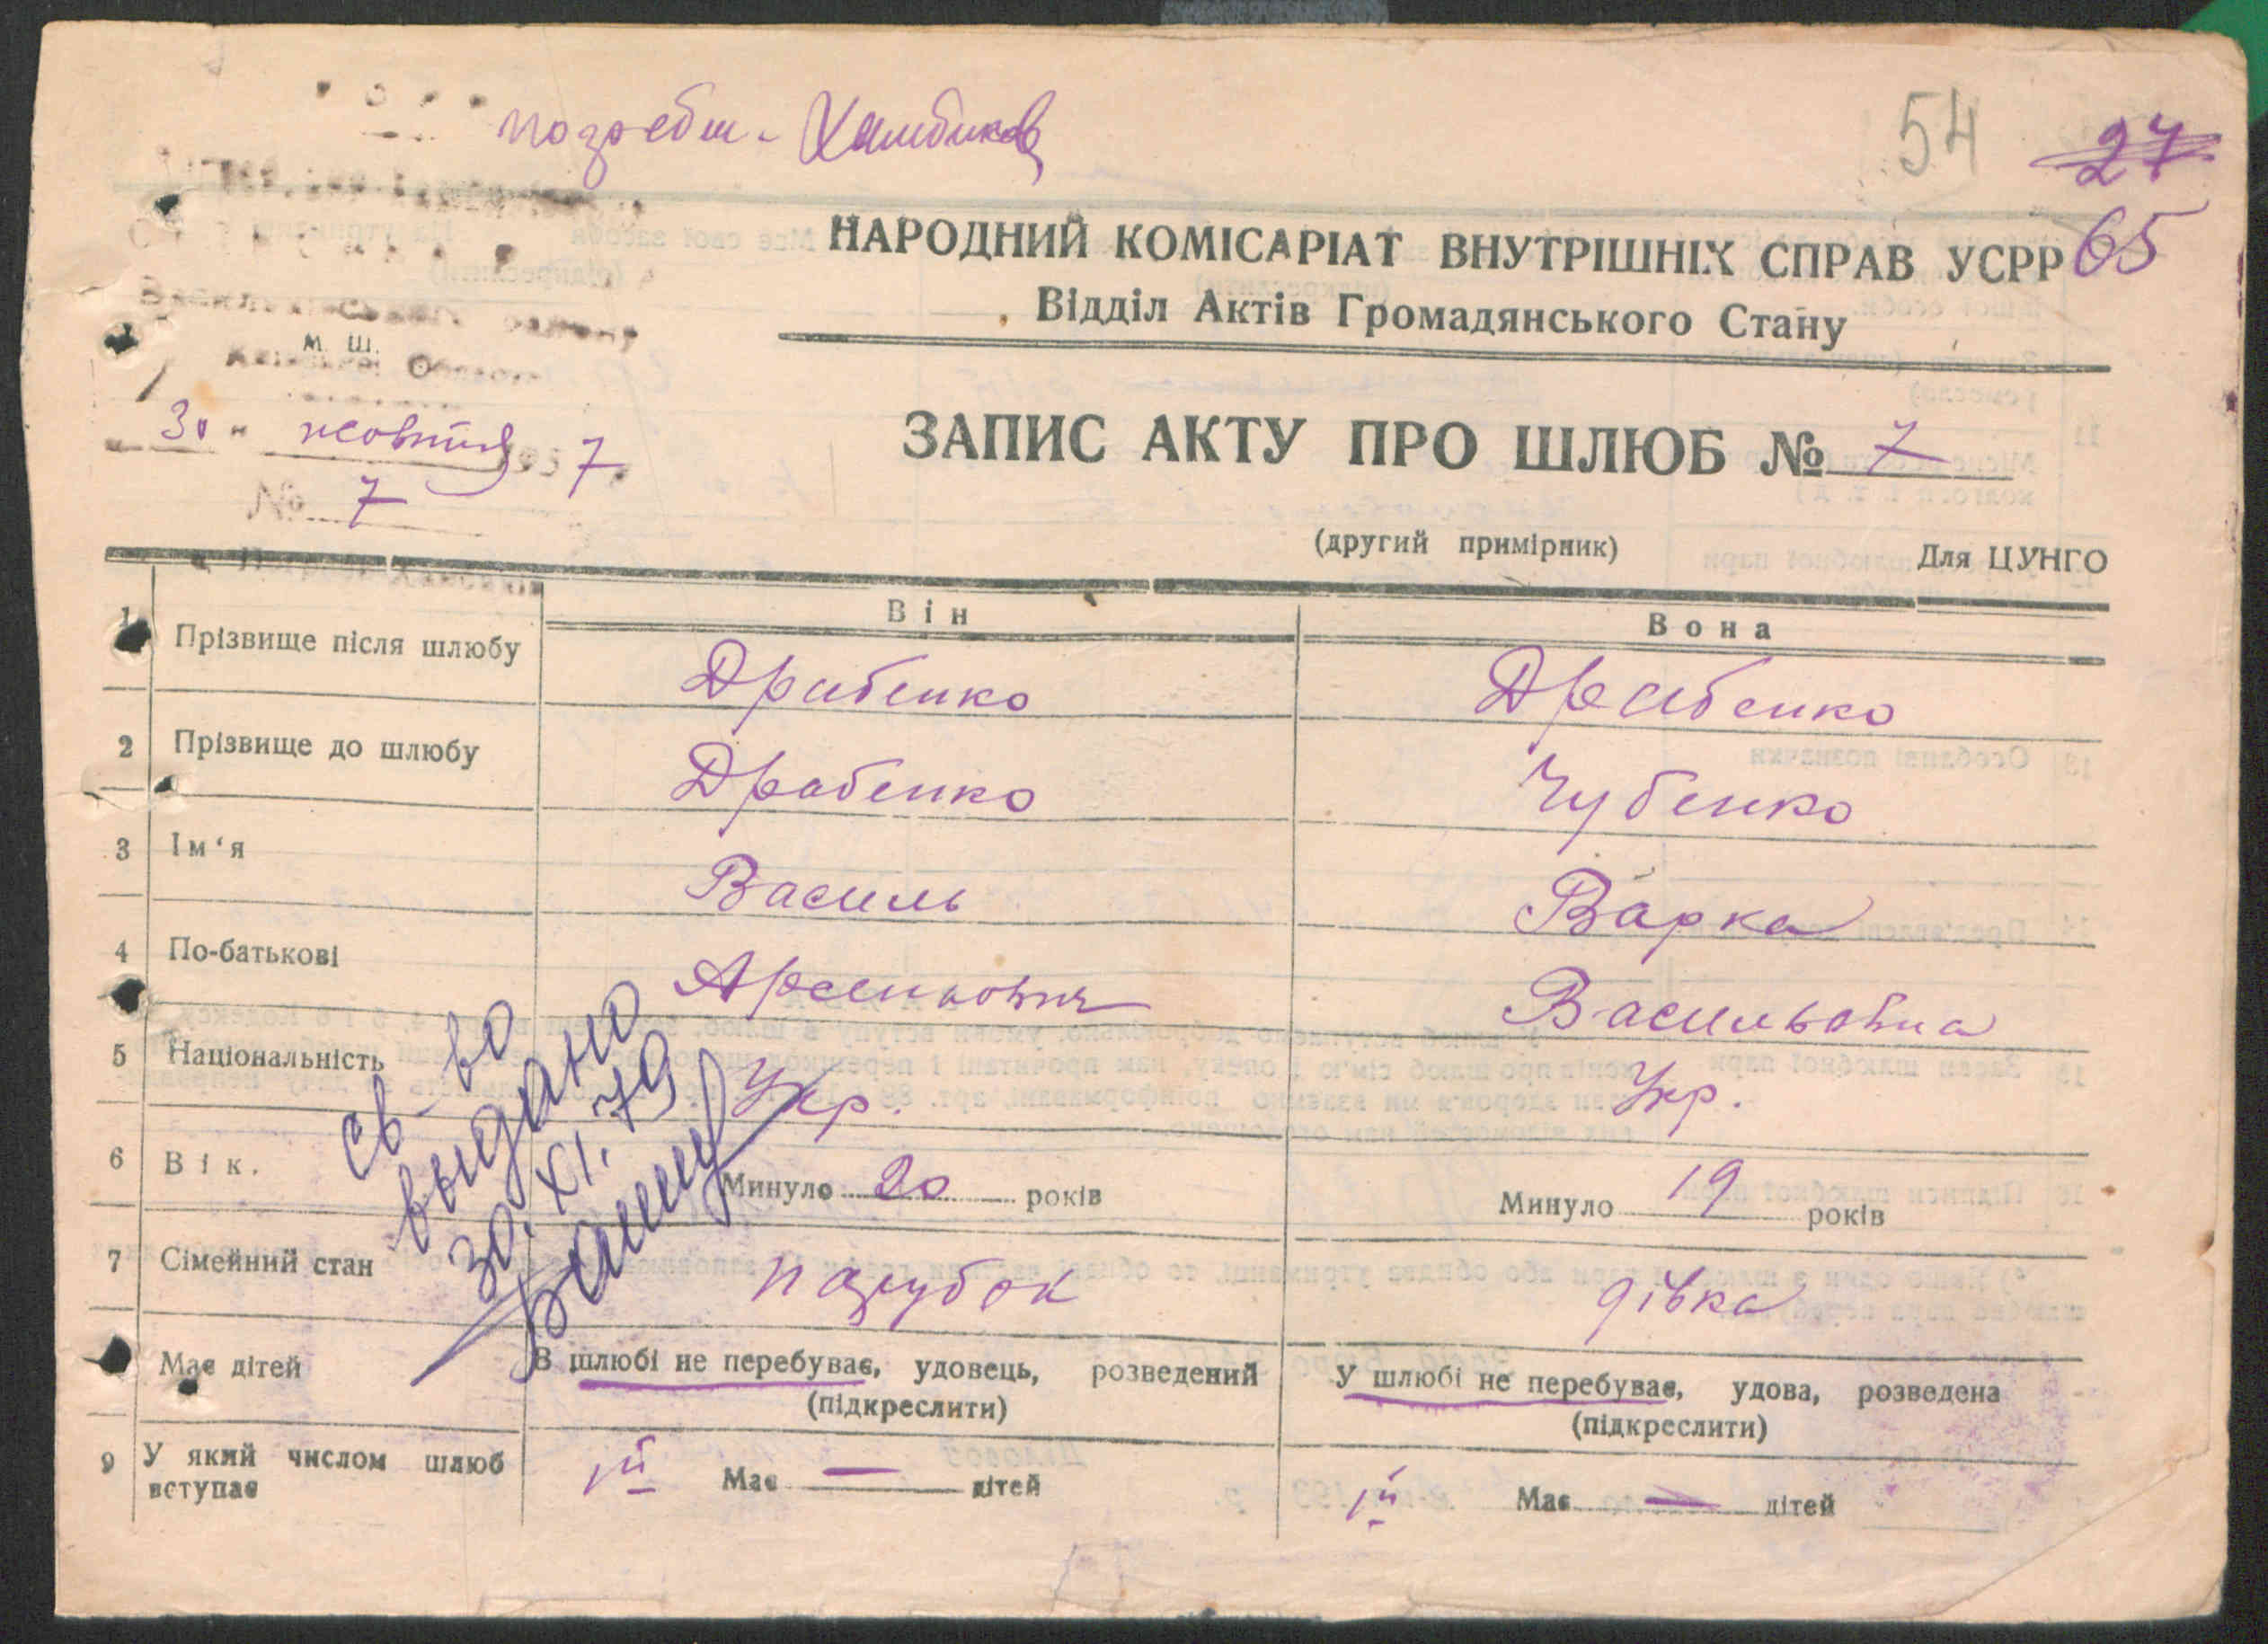 54
27
65
НАРОДНИЙ КОМІСАРІАТ ВНУТРІШНІХ СПРАВ УСРР
Відділ Актів Громадянського Стану
М. Ш.
30 " жовтня 1937
№ 7
ЗАПИС АКТУ ПРО ШЛЮБ № 7
(другий примірник) Для ЦУНГО
Він Вона
1 Прізвище після шлюбу Драбенко Драбенко
2 Прізвище до шлюбу Драбенко Чубенко
3 Ім'я Василь Варка
4 По-батькові Арсеньович Васильовна
5 Національність Укр. Укр.
6 Вік. Минуло 20 років Минуло 19 років
7 Сімейний стан парубок дівка
св-во
выдано
30.XI.79
Має дітей В шлюбі не перебуває, удовець, розведений У шлюбі не перебуває, удова, розведена
(підкреслити) (підкреслити)
9 У який числом шлюб вступає 1й Має — дітей 1й Має — дітей